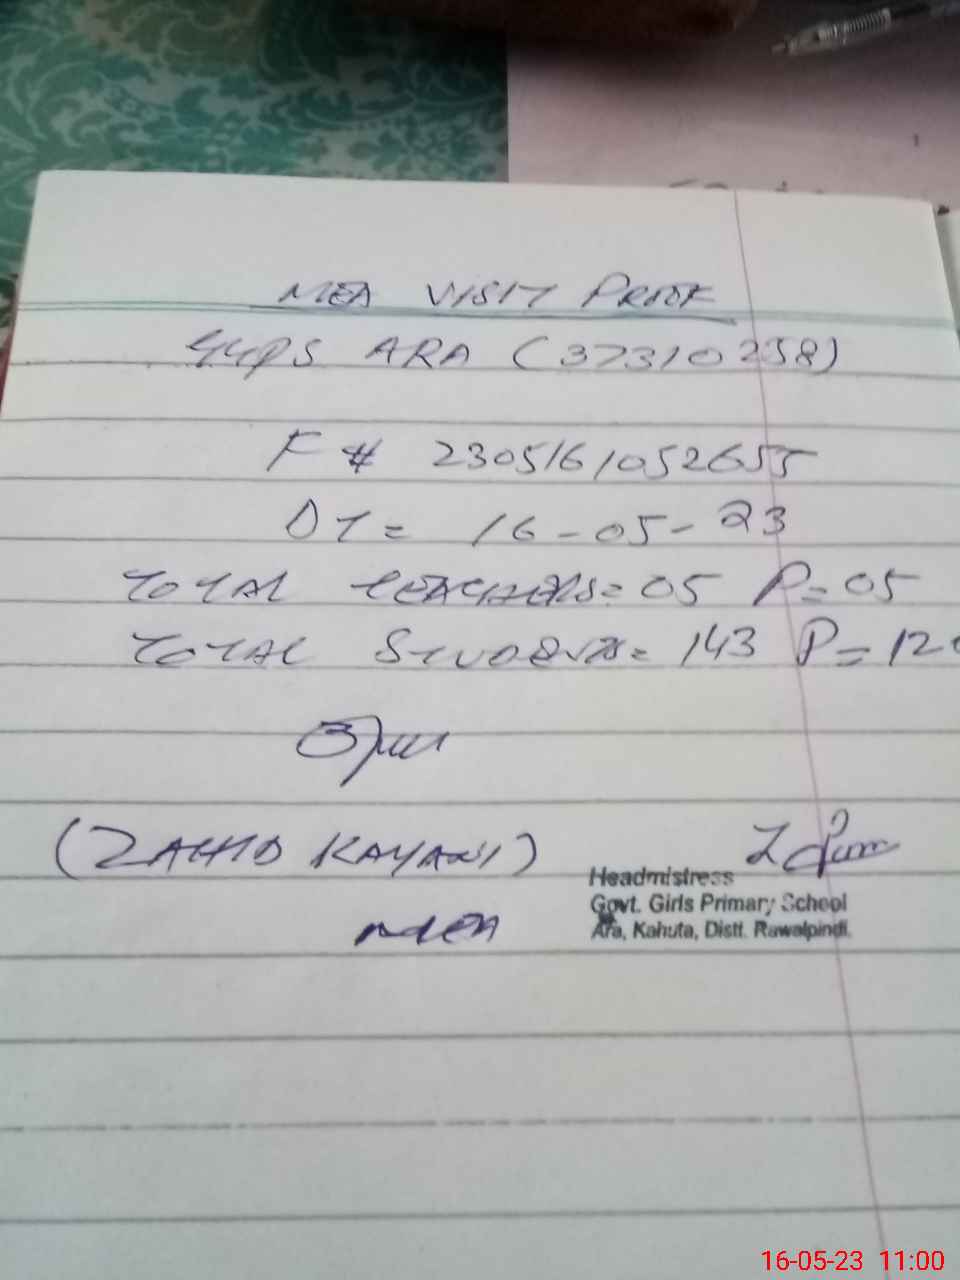 MEA VISIT PROOF
GGPS ARA (37310258)
F # 2305161052655
DT = 16-05-23
TOTAL TEACHERS = 05 P = 05
TOTAL STUDENTS = 143 P = 120
(ZAHID KAYANI)
MEA
Headmistress
Govt. Girls Primary School
Ara, Kahuta, Distt. Rawalpindi.
16-05-23 11:00